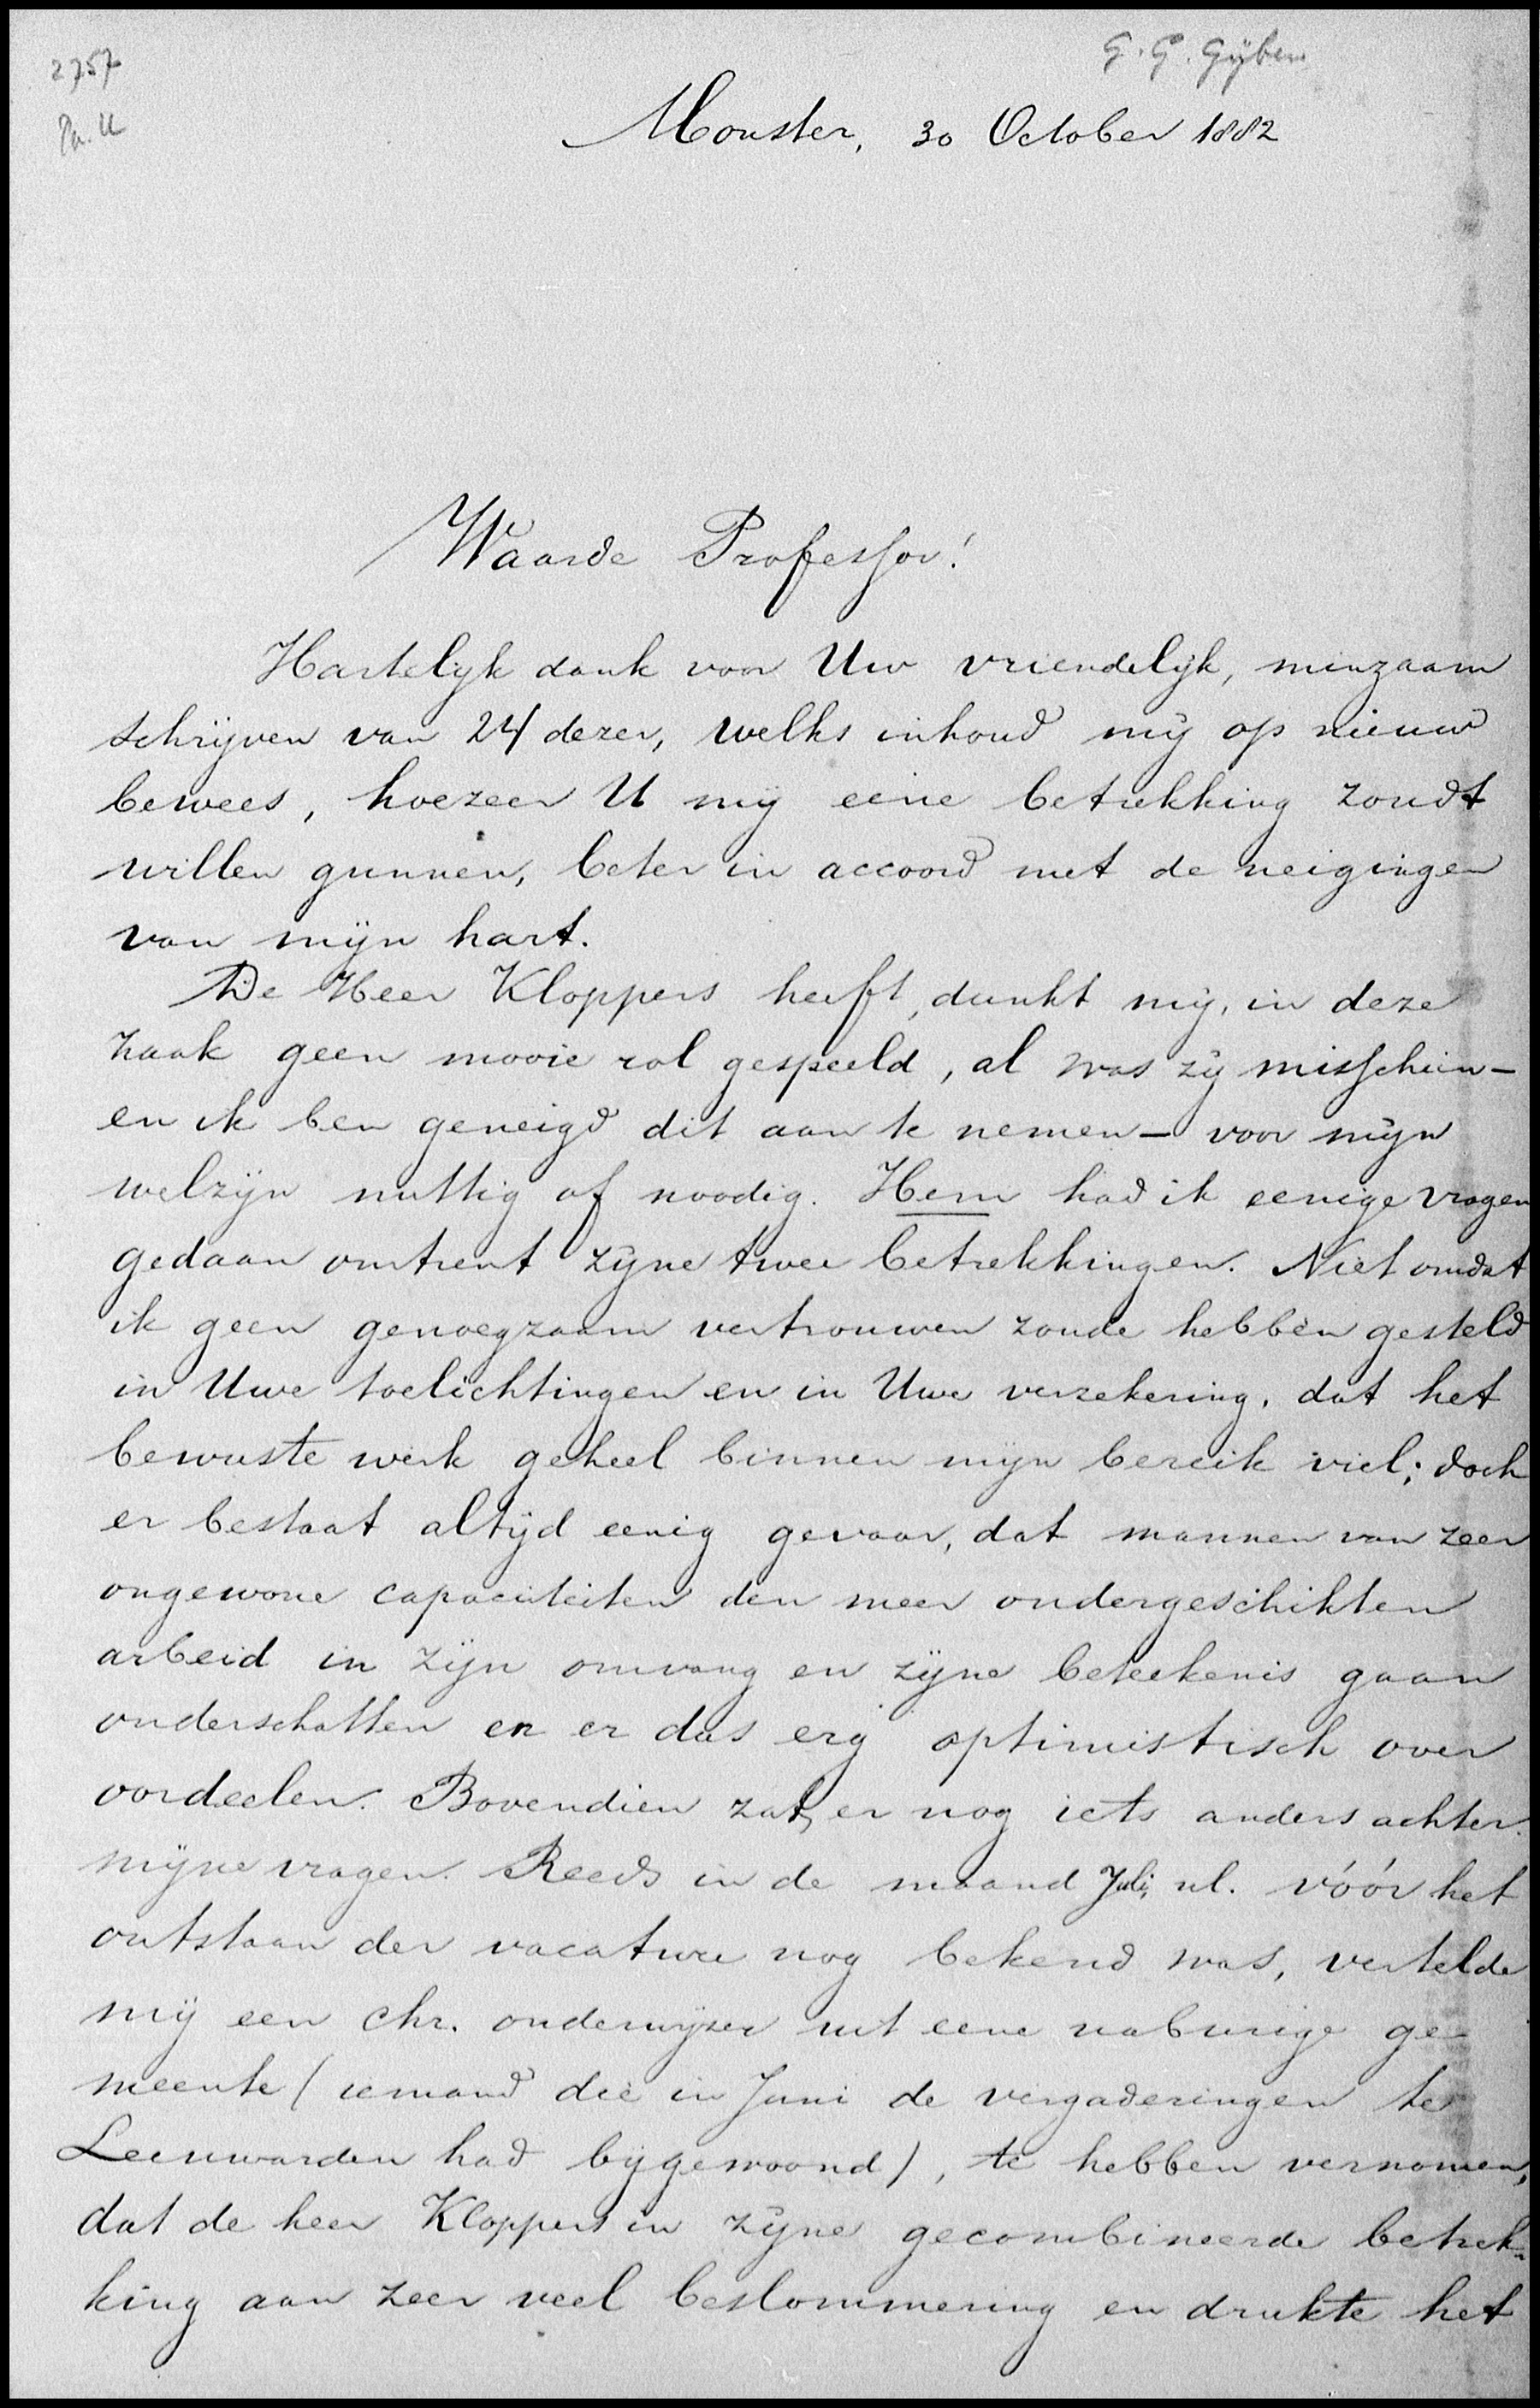 2757
G. G. Gijben
Pa. U
Monster, 30 October 1882
Waarde Professor!
Hartelijk dank voor Uw vriendelijk, minzaam
schrijven van 24 dezer, welks inhoud mij op nieuw
bewees, hoezeer U mij eene betrekking zoudt
willen gunnen, beter in accoord met de neigingen
van mijn hart.
De Heer Kloppers heeft, dunkt mij, in deze
zaak geen mooie rol gespeeld, al was zij misschien -
en ik ben geneigd dit aan te nemen - voor mijn
welzijn nuttig of noodig. Hem had ik eenige vragen
gedaan omtrent zijne twee betrekkingen. Niet omdat
ik geen genoegzaam vertrouwen zoude hebben gesteld
in Uwe toelichtingen en in Uwe verzekering, dat het
bewuste werk geheel binnen mijn bereik viel; doch
er bestaat altijd eenig gevaar, dat mannen van zeer
ongewone capaciteiten den meer ondergeschikten
arbeid in zijn omvang en zijne beteekenis gaan
onderschatten en er dus erg optimistisch over
oordeelen. Bovendien zat er nog iets anders achter
mijne vragen. Reeds in de maand Juli, nl. vóór het
ontstaan der vacature nog bekend was, vertelde
mij een chr. onderwijzer uit eene naburige ge-
meente (iemand die in Juni de vergaderingen te
Leeuwarden had bijgewoond), te hebben vernomen,
dat de heer Kloppers in zijne gecombineerde betrek-
king aan zeer veel beslommering en drukte het